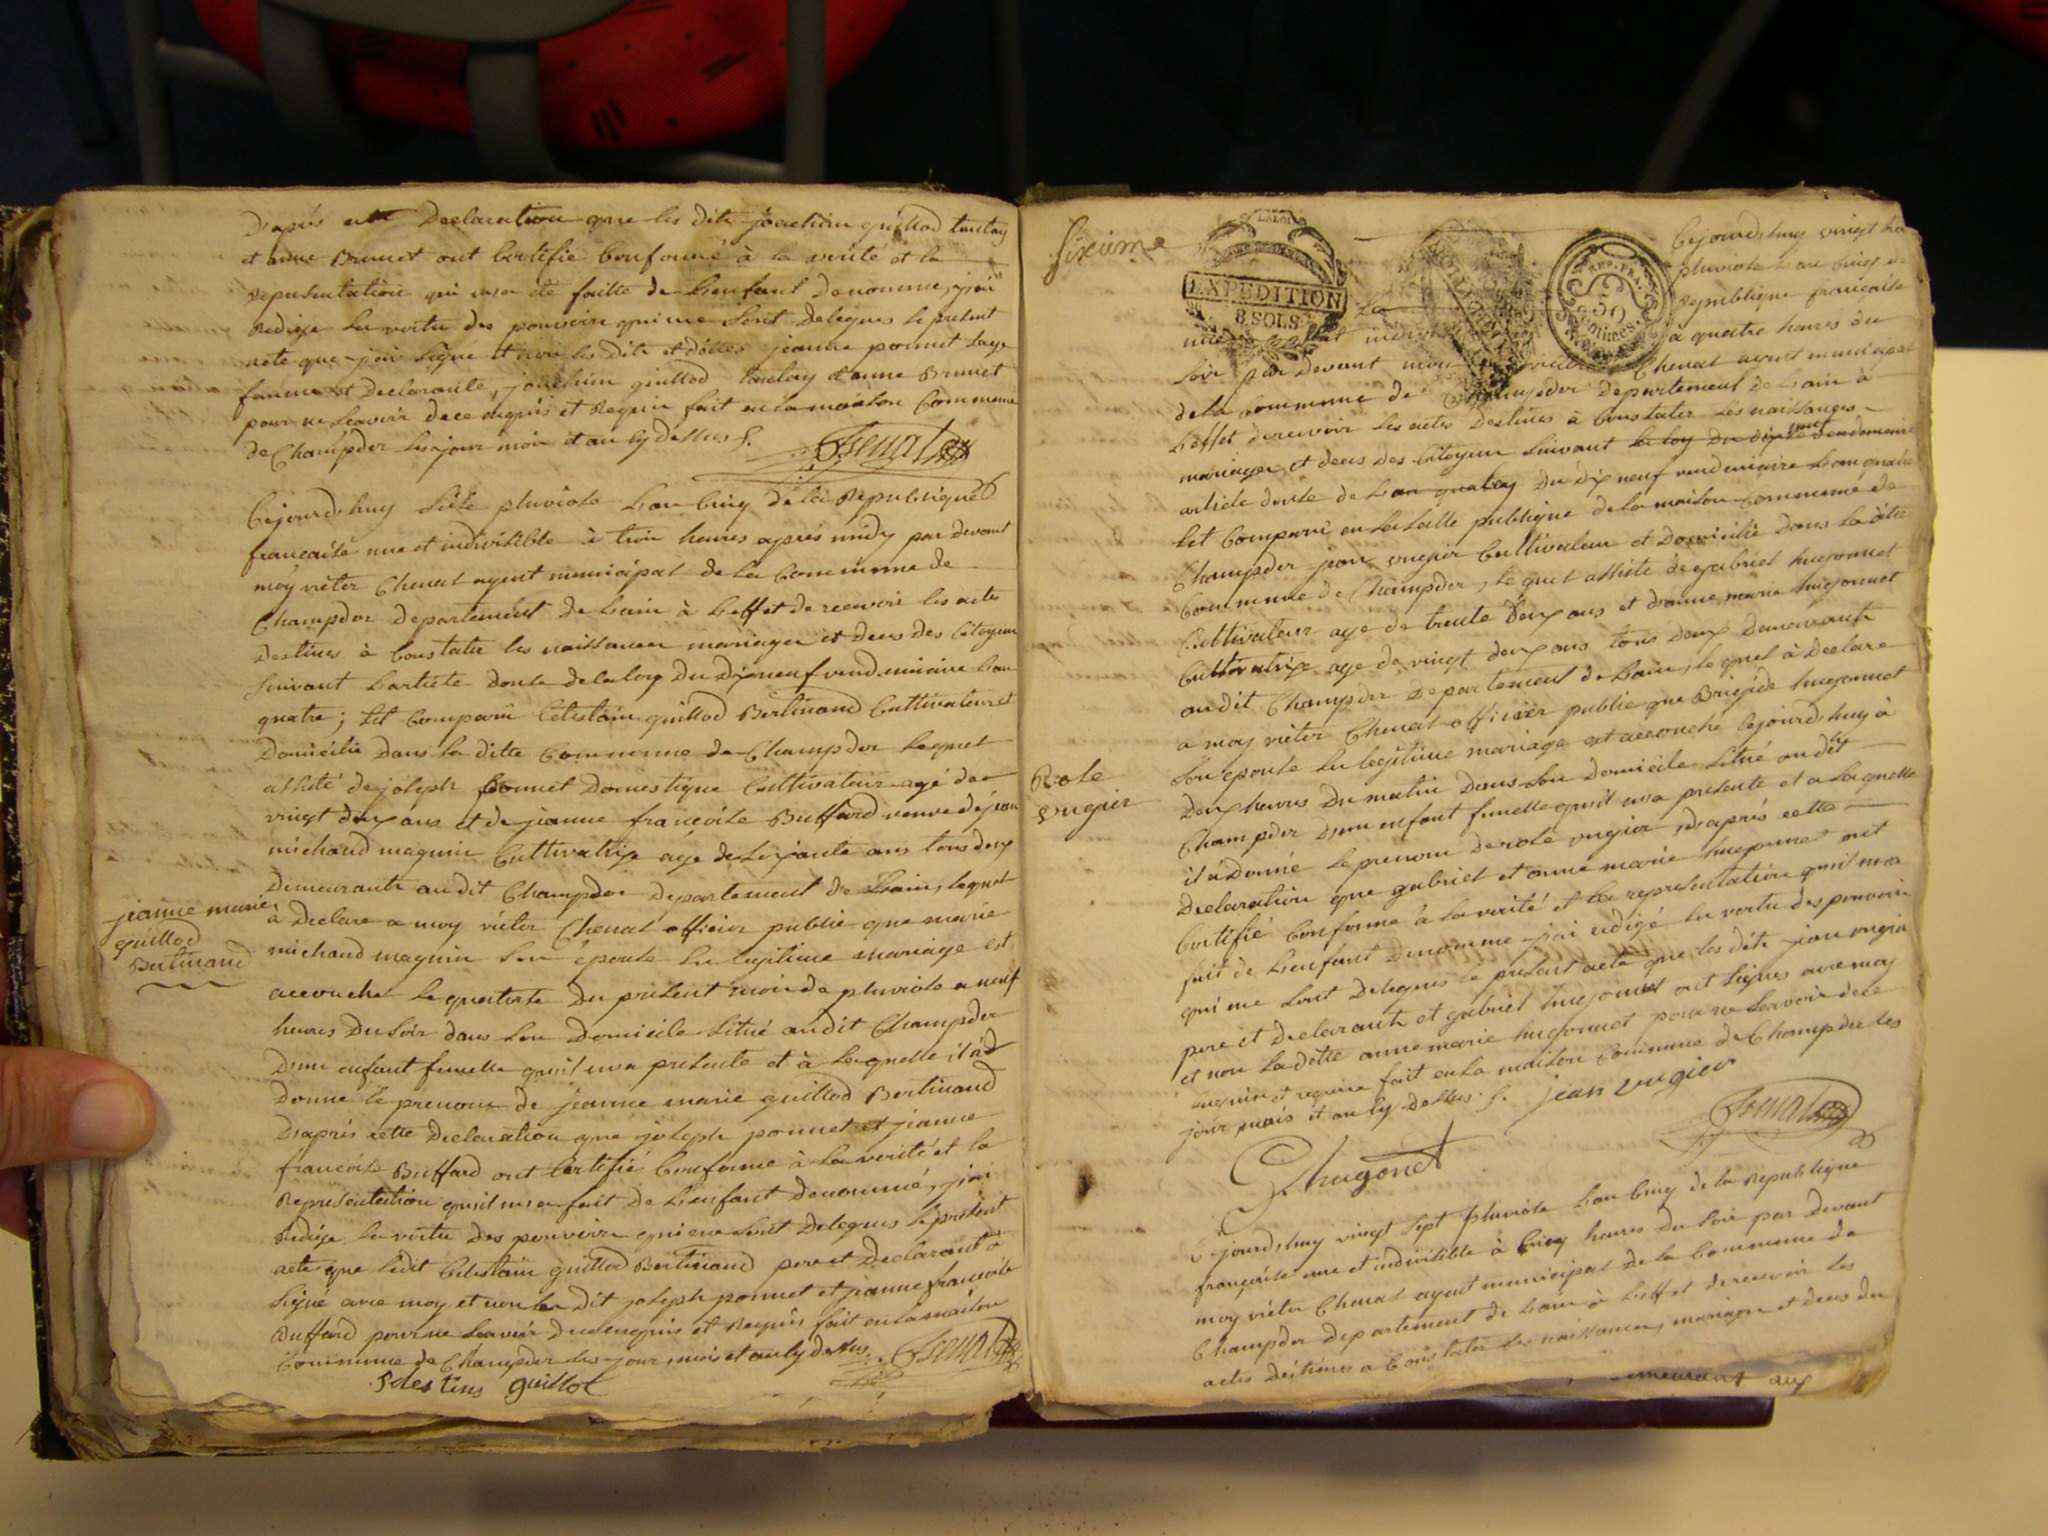 D'après cette Declaration que les dits joachim guillod tantay
et anne Brunet ont Certifie Conforme à la verité et la
representation qui m'a eté faitte de l'enfant denommé, j'ai
Redigé En vertu des pouvoirs qui me sont delegues le present
acte que j'ai signé et non les dits et dittes jeanne ponnet sage
femme et Declarante, joachim guillod tantay et anne Brunet
pour ne scavoir de ce enquis et Requis fait en la maison Commune
de Champdor les jour mois et an cy dessus
Chenal
Cejourd'huy sixte pluviose L'an Cinq de la Republique
francaise une et indivisible à trois heures aprés midy par devant
moy viétor Chenal agent municipal de la Commune de
Champdor departement de L'ain à L'effet de recevoir les actes
Destinés à Constater les naissances mariages et deces des Citoyens
suivant L'article douze de la loy du Dixneuf vendemiaire L'an
quatre; Est Comparu Celestain guillod Bertinand Cultivateur et
Domicilié dans la ditte Commune de Champdor Lequel
assisté de joseph ponnet Domestique Cultivateur agé de
vingt deux ans et de jeanne francoise Buffard veuve de jean
michaud magnin Cultivatrix agé de soixante ans tous deux
Demeurants audit Champdor departement de L'ain, lequel
à Declare a moy viétor Chenal officier public que marie
michaud magnin son épouse En legitime mariage est
accouchee le quatorze du present mois de pluviose a neuf
heures du soir dans son Domicile situé audit Champdor
D'un enfant femelle qu'il m'a presente et à laquelle il a
Donné le prenom de jeanne marie guillod Bertinand
D'aprés cette Declaration que joseph ponnet et jeanne
francoise Buffard ont Certifié Conforme à la verité et la
Representation qu'il m'a fait de L'enfant denommé, j'ai
Redigé En vertu des pouvoirs qui me sont delegues le present
acte que ledit Celestain guillod Bertinand pere et Declarant à
signé avec moy et non les dit joseph ponnet et jeanne francoise
Buffard pour ne scavoir de ce enquis et Requis fait en la maison
Commune de Champdor les jour, mois et an cy dessus. Chenal
Selestins guillot
jeanne marie
guillod
Bertinand
Sixieme
LA LOI
EXPEDITION
8 SOLS
REP. FRA.
50
Centimes
Cejourd'huy vingt
pluviose L'an Cinq de
Republique francaise
à quatre heures du
soir par devant moy Chenal agent municipal
de la Commune de Champdor departement de L'ain à
L'effet de recevoir les actes Destinés à Constater les naissances
mariages et deces des Citoyens suivant la loy du dix vendemiaire
article douze de la loy du Dix neuf vendemiaire L'an quatre
Est Comparu en la salle publique de la maison Commune de
Champdor jean vugier Cultivateur et Domicilié dans la dite
Commune de Champdor, lequel assisté de gabriel hugonnet
Cultivateur agé de trente deux ans et d'anne marie hugonnet
Cultivatrix agé de vingt deux ans tous deux Demeurants
audit Champdor departement de L'ain, lequel à Declare
a moy viétor Chenal officier public que Brigide hugonnet
son epouse En legitime mariage est accouché cejourd'huy à
Deux heures du matin dans son domicile situé audit
Champdor D'un enfant femelle qu'il m'a presente et a laquelle
il a Donné le prenom de rose vugier, D'aprés cette
Declaration que gabriel et anne marie hugonnet ont
Certifié Conforme à la verité et la representation qu'il m'a
fait de L'enfant denomme j'ai redigé En vertu des pouvoirs
qui me sont delegues le present acte que les dits jean vugier
pere et declarant et gabriel hugonnet ont signes avec moy
et non la ditte anne marie hugonnet pour ne scavoir de ce
enquis et requise fait en la maison Commune de Champdor les
jour mois et an cy dessus. jean vugier
Chenal
G. hugonet
Rose
vugier
Cejourd'huy vingt sept pluviose L'an Cinq de la Republique
française une et indivisible à Cinq heures du soir par devant
moy viétor Chenal agent municipal de la Commune de
Champdor departement de L'ain à L'effet de recevoir les
actes destinés a Constater les naissances, mariages et deces des
demeurant aux